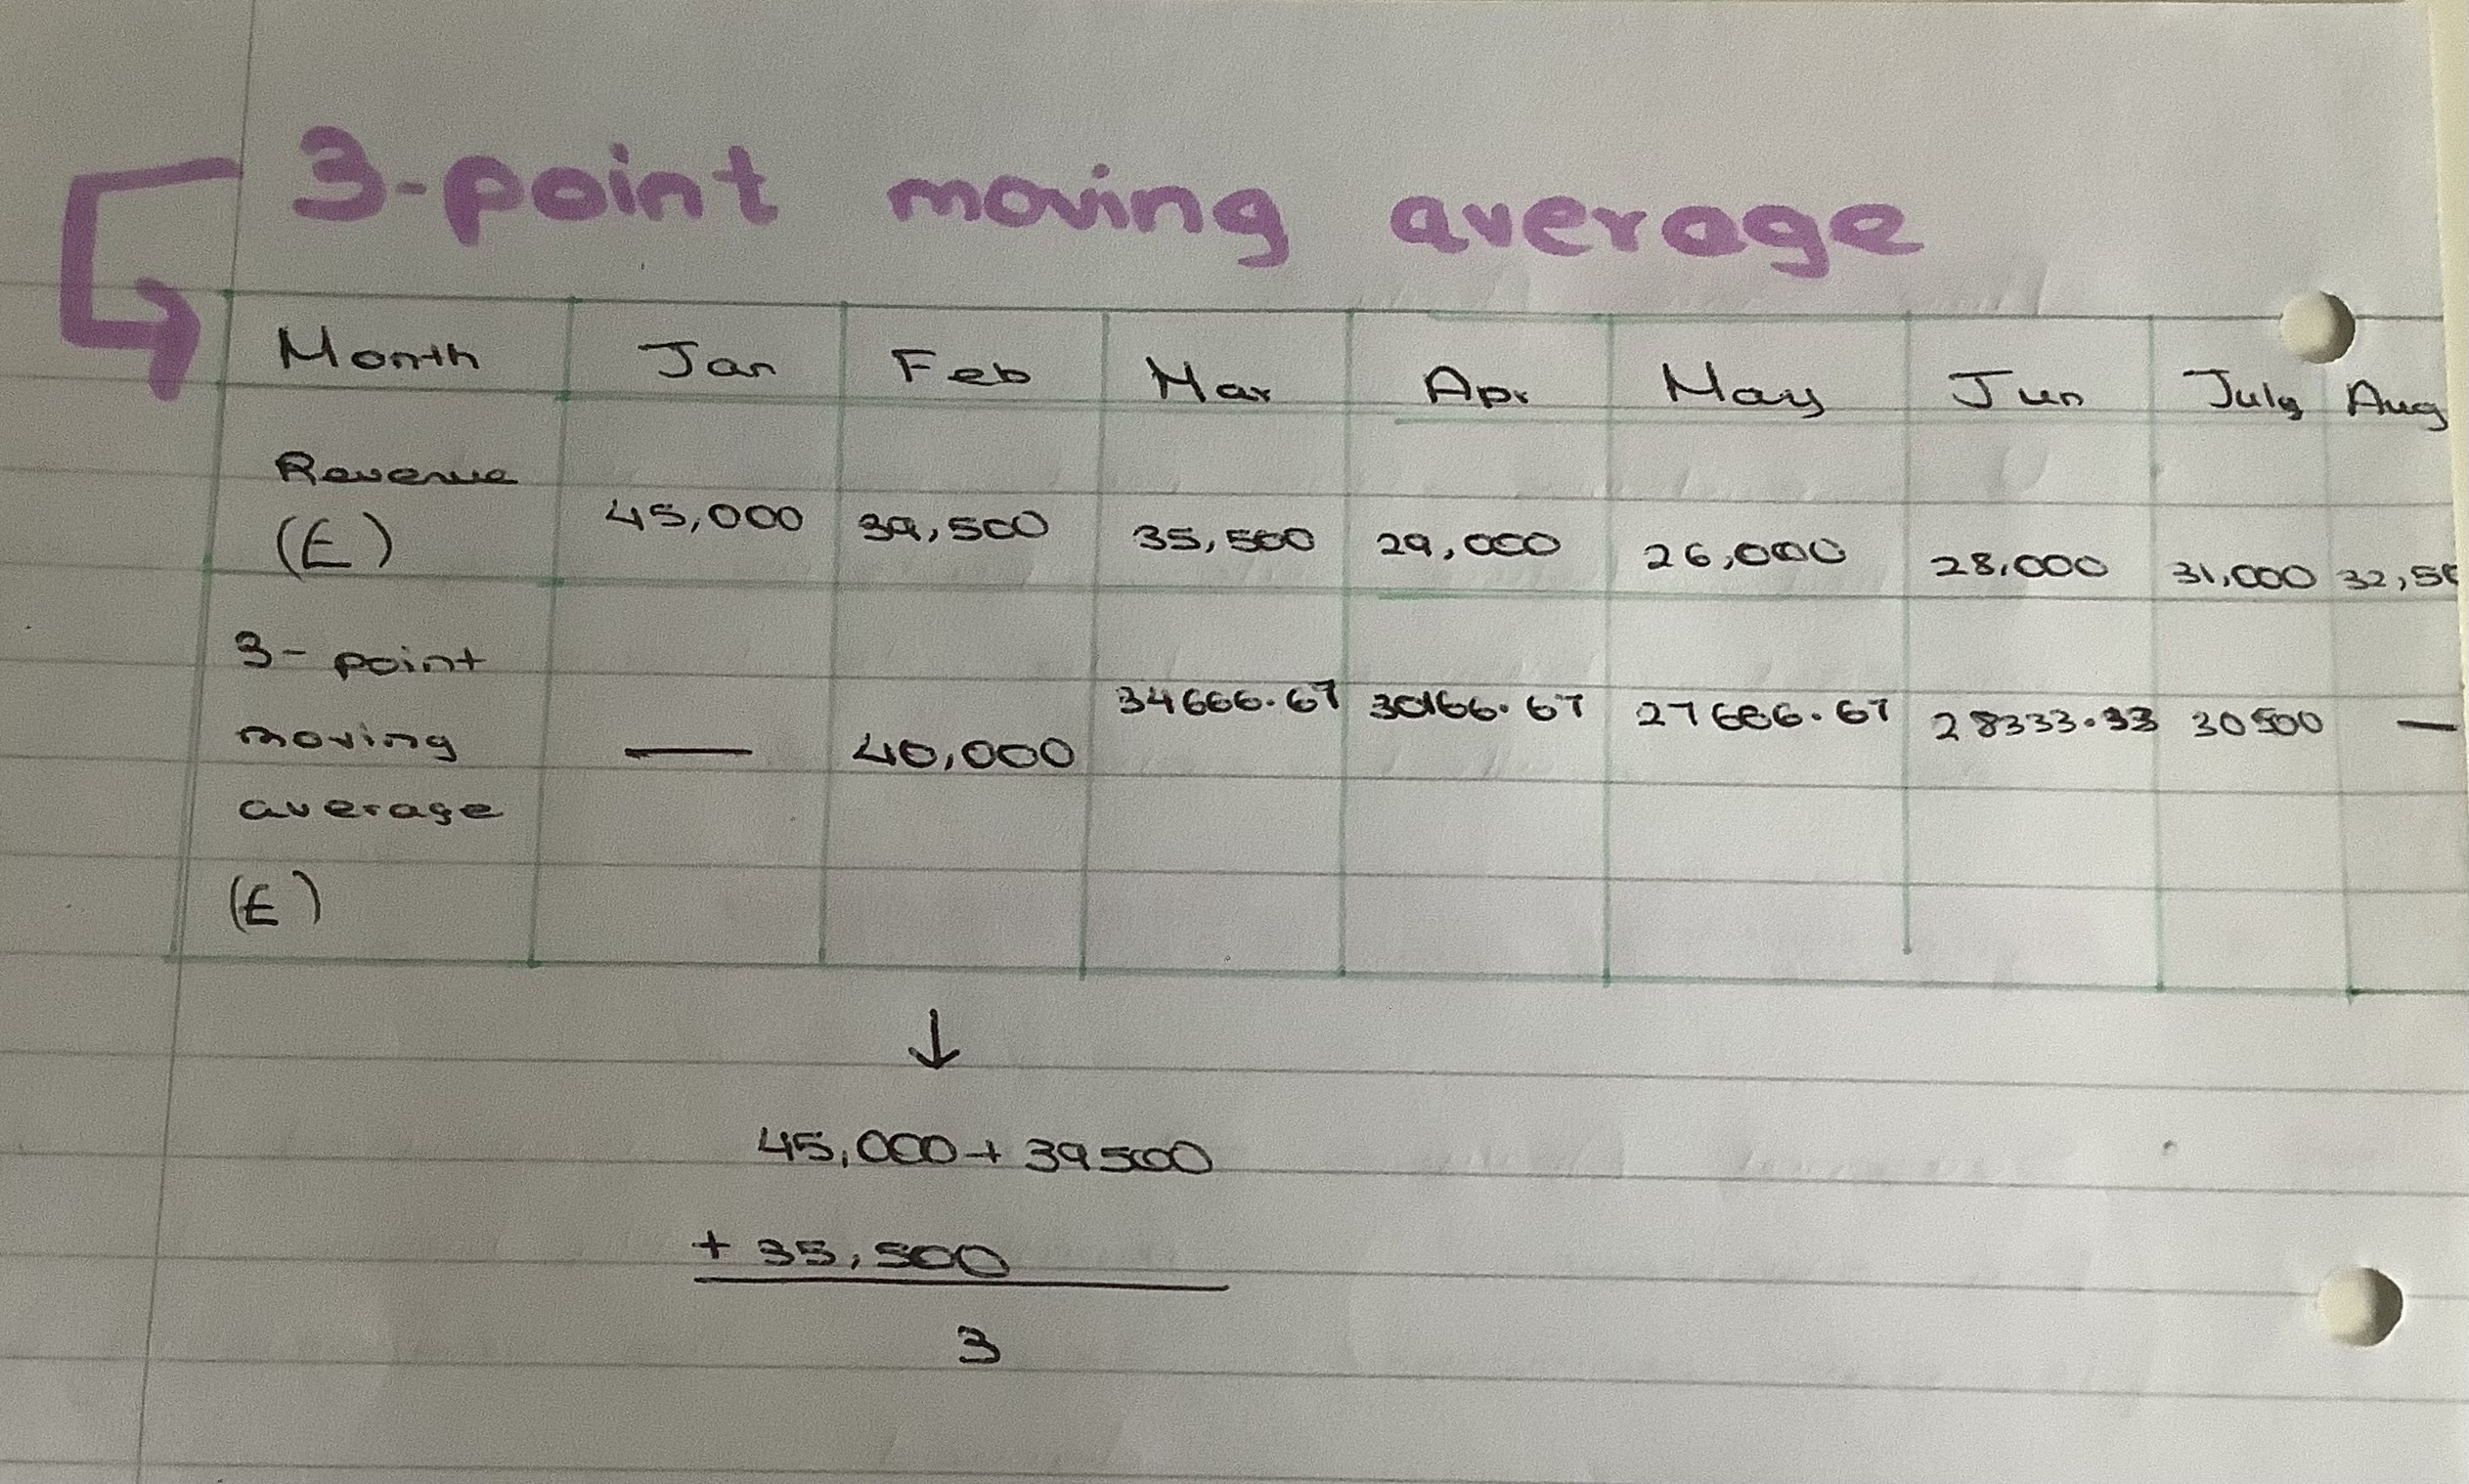 3-point moving average
Month Jan Feb Mar Apr May Jun July Aug
Revenue
(£) 45,000 39,500 35,500 29,000 26,000 28,000 31,000 32,50
3-point
moving
average — 40,000 34666.67 30166.67 27666.67 28333.33 30500 —
(£)
↓
45,000 + 39500
+ 35,500
3